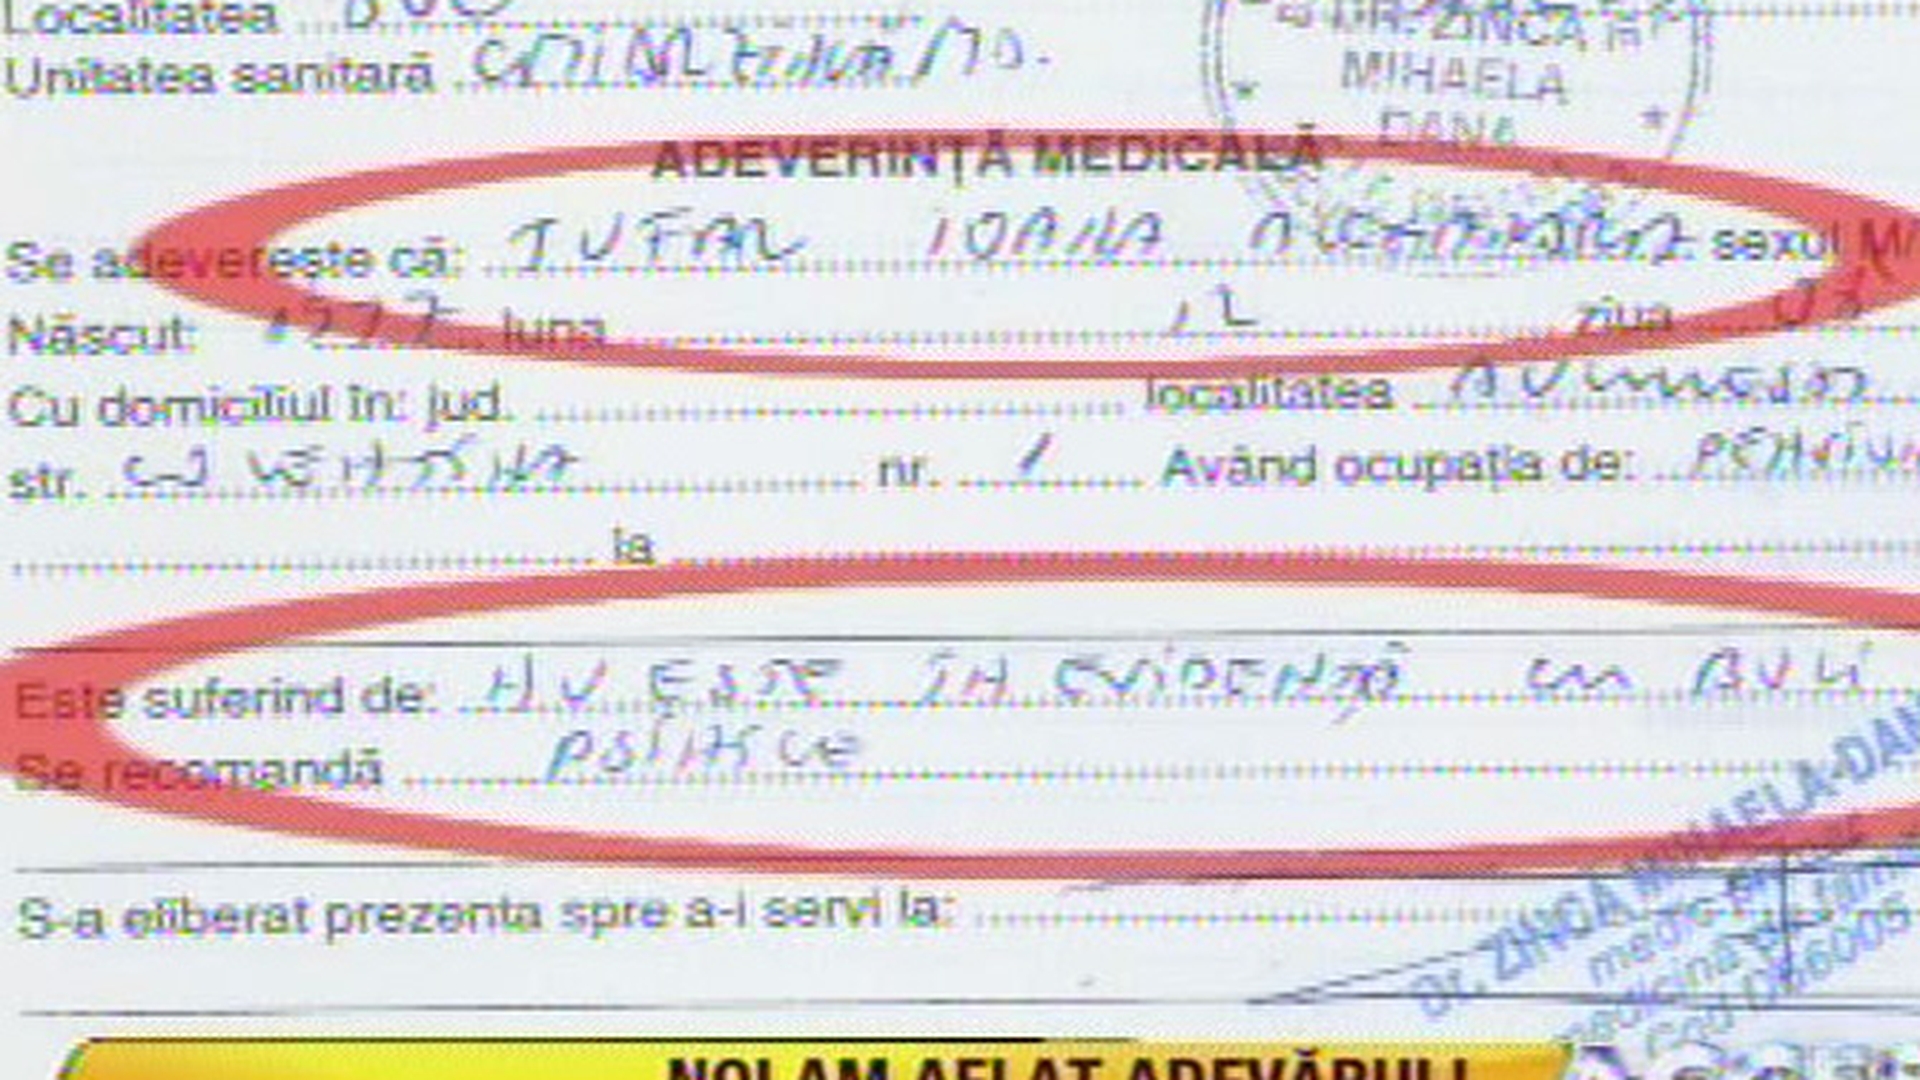 Localitatea
Unitatea sanitară
DR. ZINCA
MIHAELA
DANA
ADEVERINȚĂ MEDICALĂ
Se adeverește că: TUFAN IOANA ALEXANDRA sexul M/
Născut: 1977 luna 12 ziua 03
Cu domiciliul în: jud. localitatea
str. nr. 1 Având ocupația de:
la
Este suferind de: NU ESTE ÎN EVIDENȚĂ cu BOLI
Se recomandă psihice
S-a eliberat prezenta spre a-i servi la:
Dr. ZINCĂ MIHAELA-DAN
medic
medicina
cod
NOI AM AFLAT ADEVĂRUL!